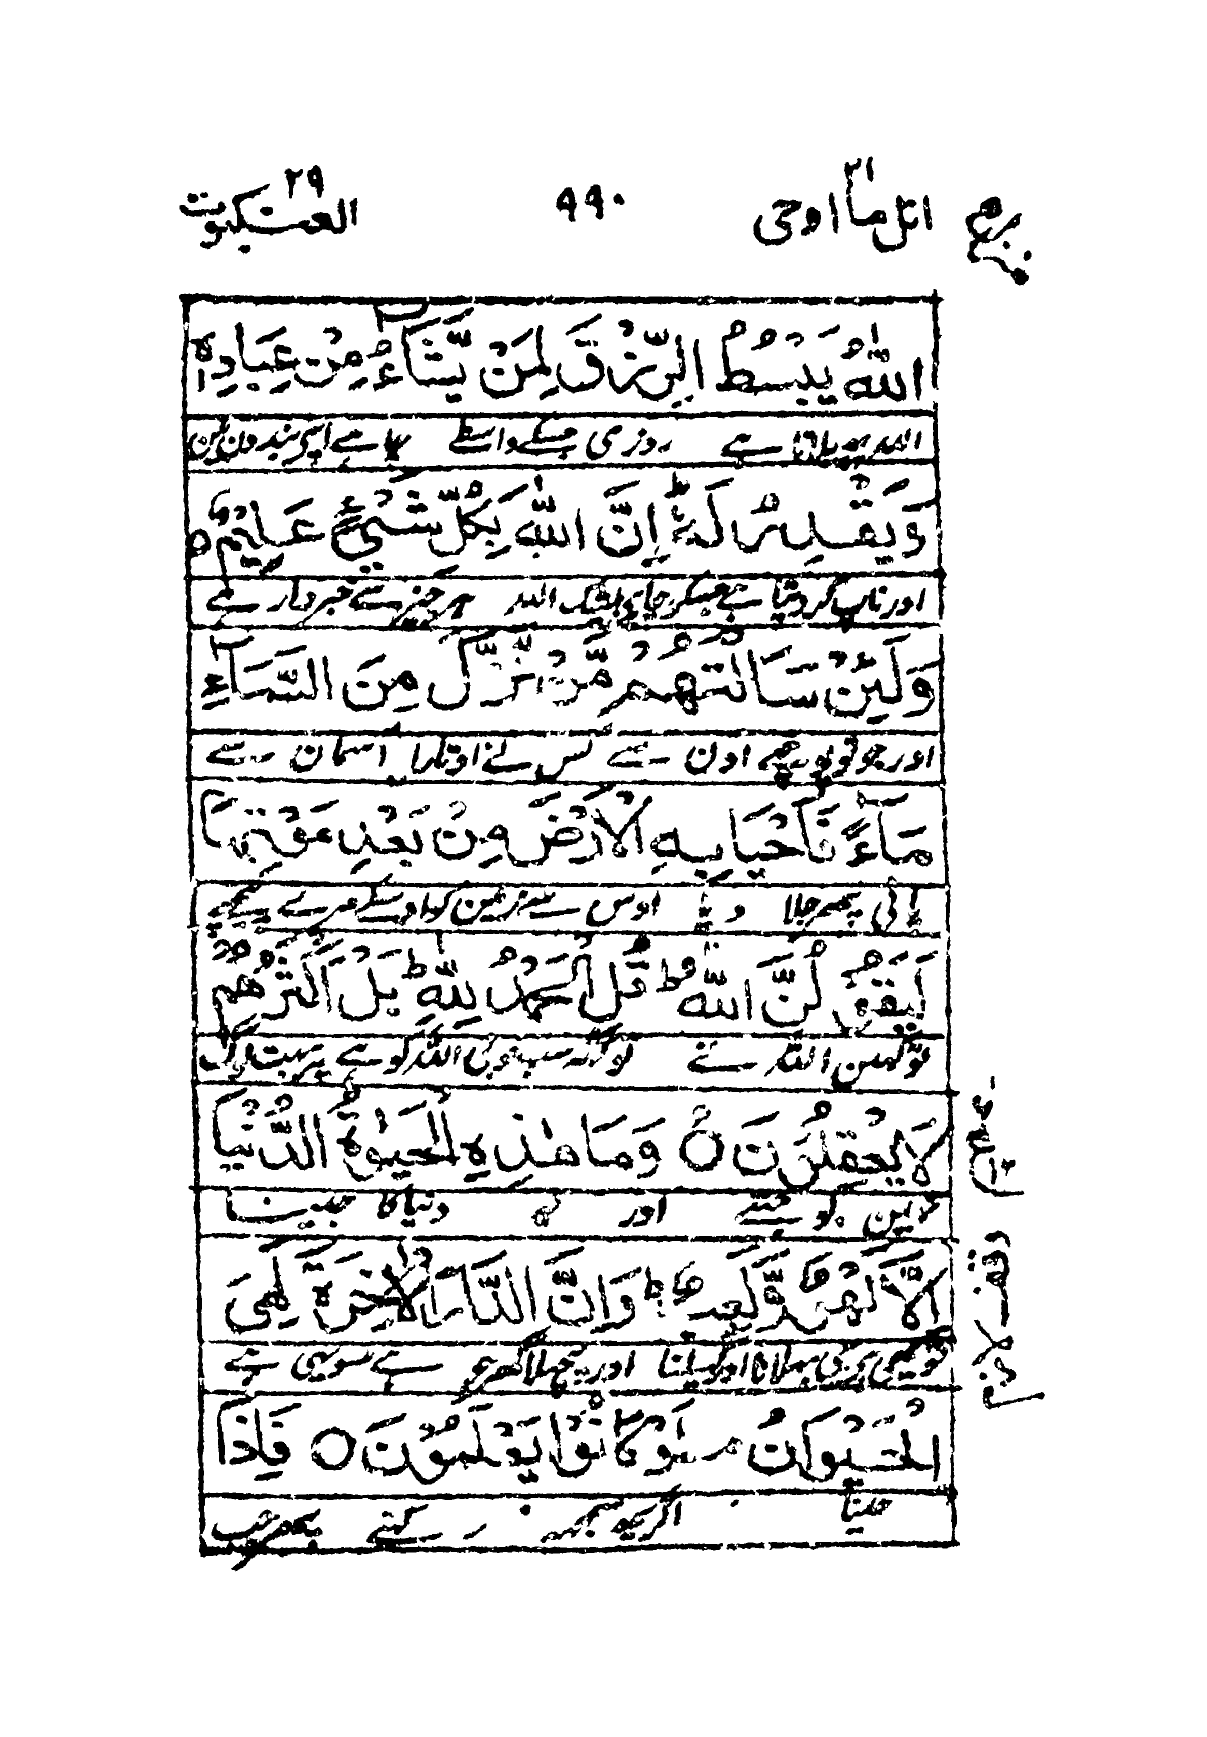 اتل ما اوحی ٢١ ٩٩٠ العنکبوت ٢٩
اَللّٰهُ يَبْسُطُ الرِّزْقَ لِمَنْ يَّشَآءُ مِنْ عِبَادِهٖ
اللہ پہیلاتا ہے روزی جسکے واسطے چاہے اپنے بندون مین
وَيَقْدِرُ لَهٗ ؕ اِنَّ اللّٰهَ بِكُلِّ شَيْءٍ عَلِيْمٌ
اور ناپ کر دیتا ہے جسکو چاہے بیشک اللہ ہر چیز سے خبردار ہے
وَلَئِنْ سَاَلْتَهُمْ مَّنْ نَّزَّلَ مِنَ السَّمَآءِ
اور جو تو پوچھے اون سے کس نے اوتارا آسمان سے
مَآءً فَاَحْيَا بِهِ الْاَرْضَ مِنْۢ بَعْدِ مَوْتِهَا
پانی پھر جلا دیا اوس سے زمین کو اوسکے مرے پیچھے
لَيَقُوْلُنَّ اللّٰهُ ؕ قُلِ الْحَمْدُ لِلّٰهِ ؕ بَلْ اَكْثَرُهُمْ
تو کہین اللہ نے تو کہہ سب خوبی اللہ کو ہے پر بہت لوگ
لَا يَعْقِلُوْنَ ○ وَمَا هٰذِهِ الْحَيٰوةُ الدُّنْيَآ
نہین بوجھتے اور یہ دنیا کا جینا
اِلَّا لَهْوٌ وَّلَعِبٌ ؕ وَاِنَّ الدَّارَ الْاٰخِرَةَ لَهِيَ
تو یہی ہے جی بہلانا اور کھیلنا اور پچھلا گھر جو ہے سو یہی ہے
الْحَيَوَانُ ۘ لَوْ كَانُوْا يَعْلَمُوْنَ ○ فَاِذَا
جینا اگر یہ سمجھ رکھتے پھر جب